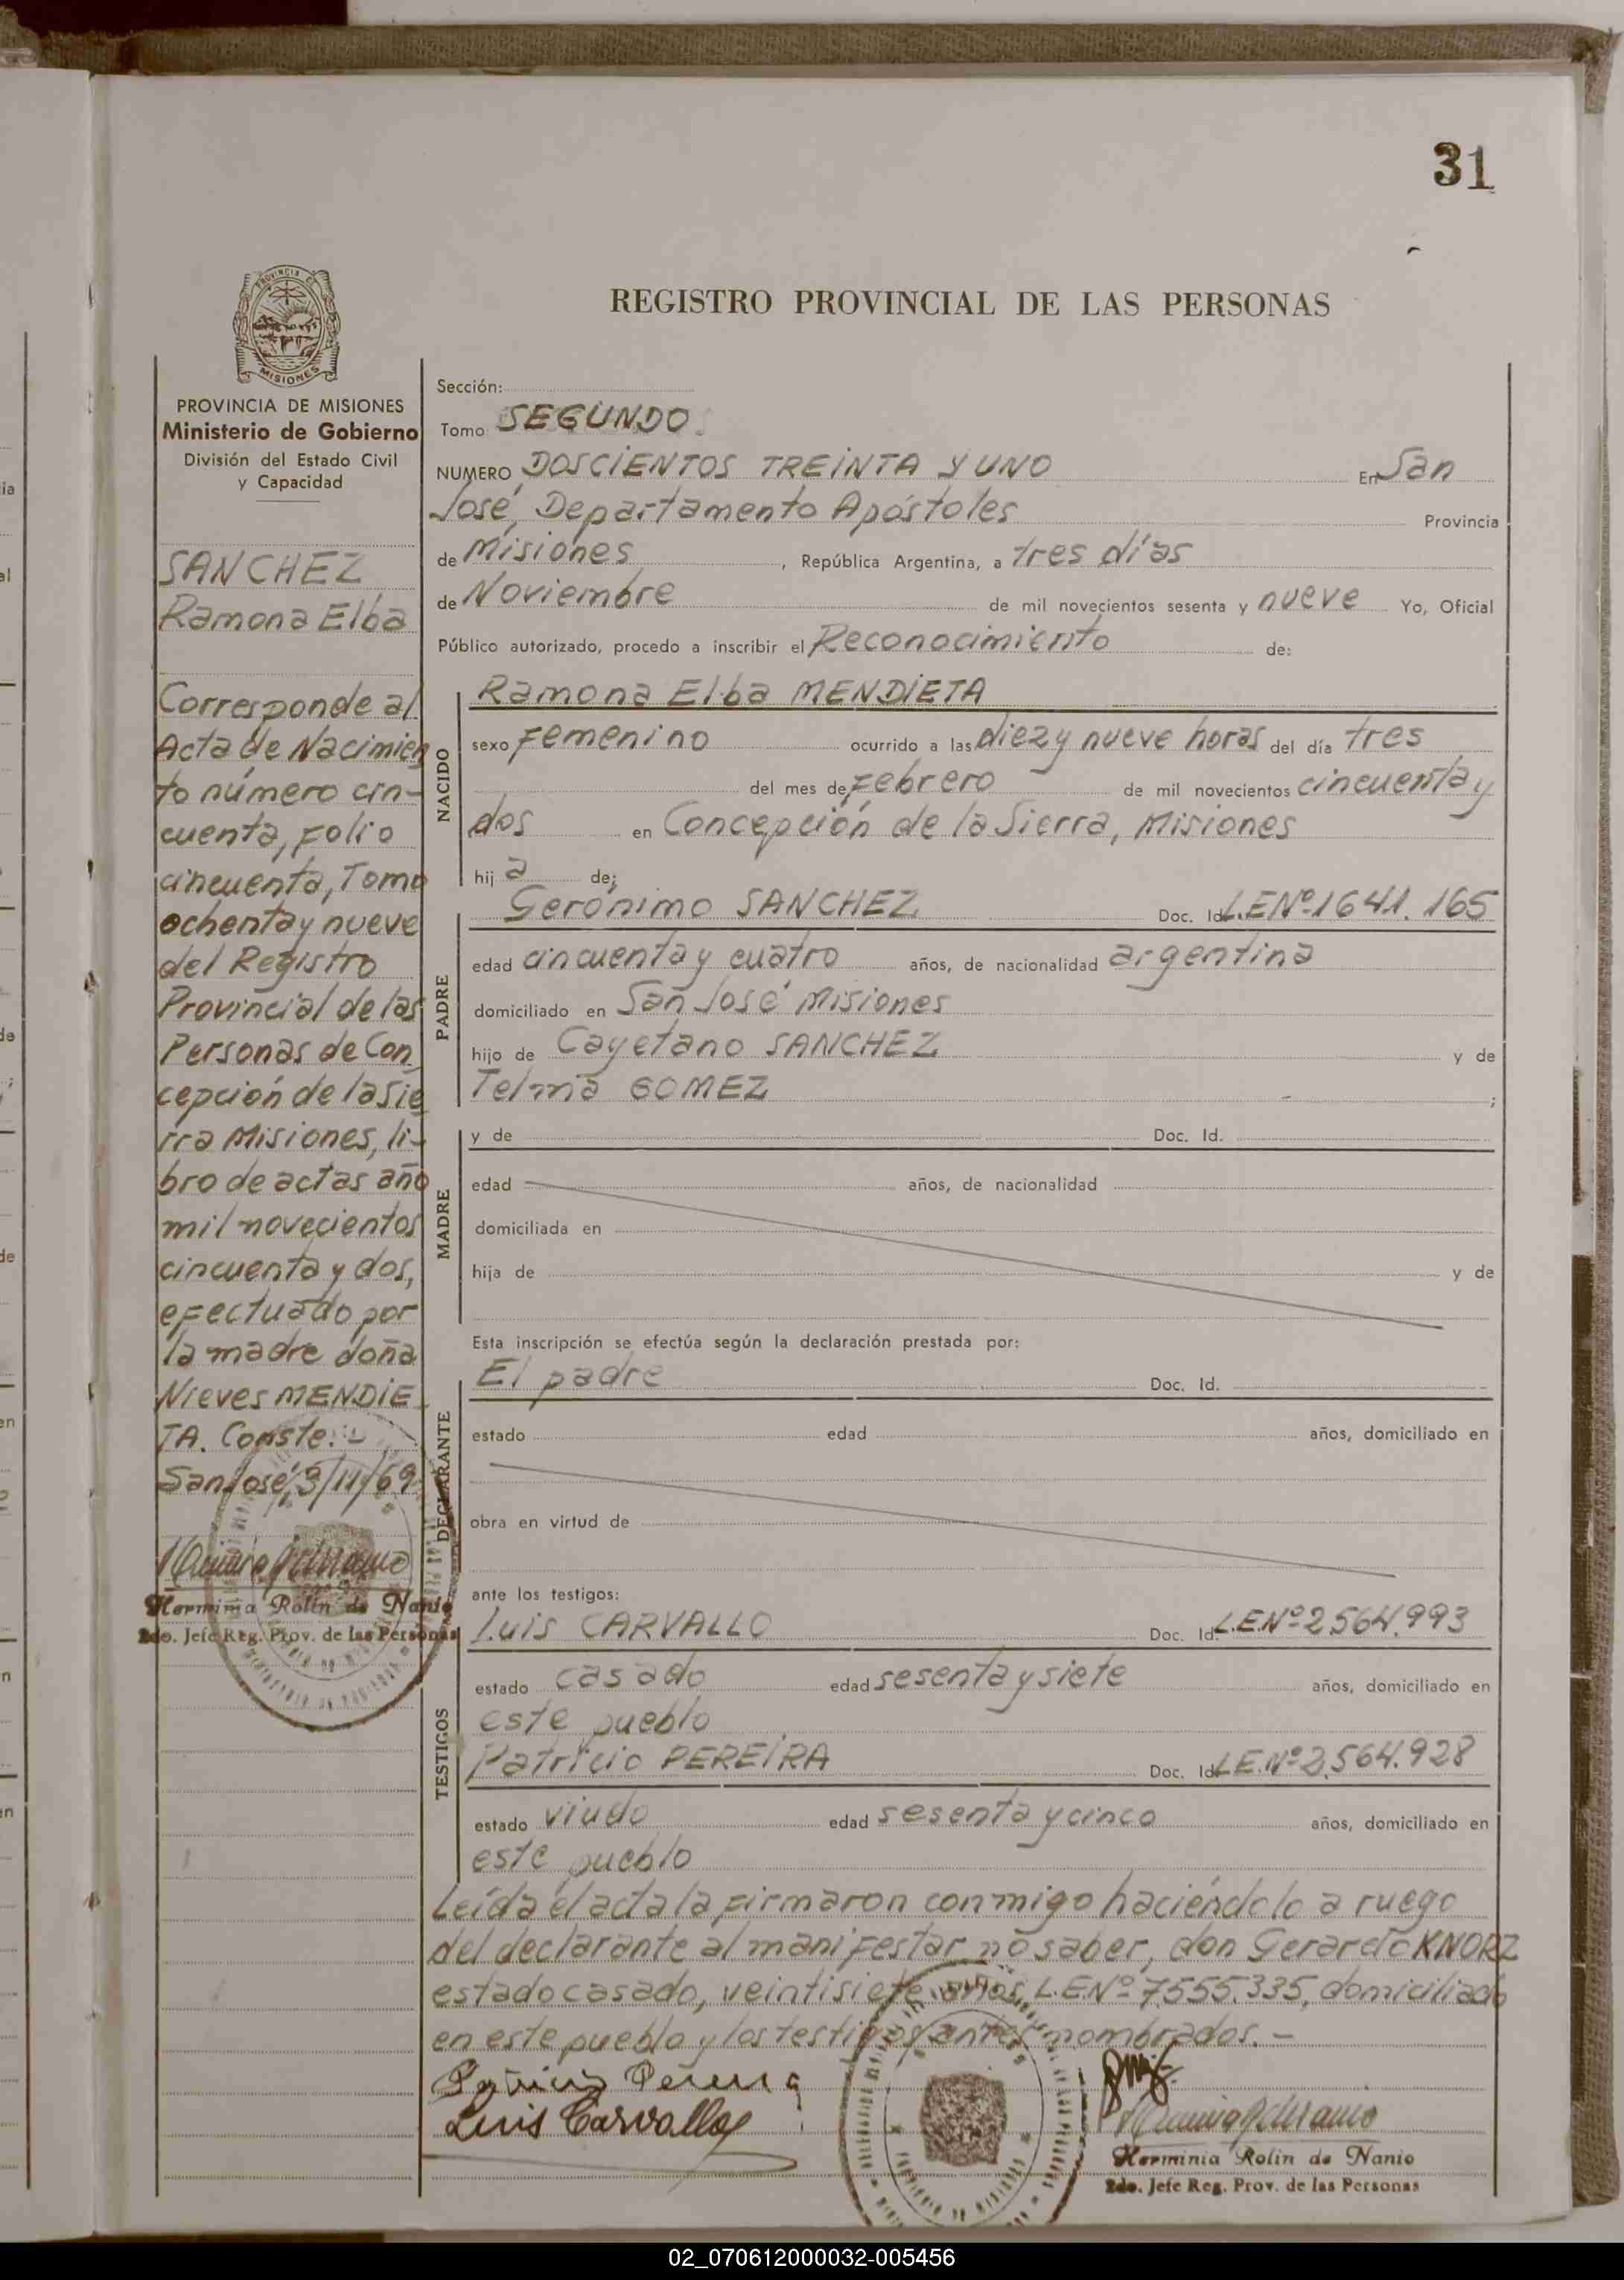 31
REGISTRO PROVINCIAL DE LAS PERSONAS
PROVINCIA DE
MISIONES
PROVINCIA DE MISIONES
Ministerio de Gobierno
División del Estado Civil
y Capacidad
SANCHEZ
Ramona Elba
Corresponde al
Acta de Nacimien
to número cin-
cuenta, Folio
cincuenta, Tomo
ochenta y nueve
del Registro
Provincial de las
Personas de Con
cepción de la Sie
rra Misiones, li-
bro de actas año
mil novecientos
cincuenta y dos,
efectuado por
la madre doña
Nieves MENDIE
TA. Conste.-
San José, 3/11/69
Herminia Rolin de Nanio
2do. Jefe Reg. Prov. de las Personas
Sección:
Tomo SEGUNDO
NUMERO DOSCIENTOS TREINTA Y UNO En San
José, Departamento Apóstoles Provincia
de Misiones , República Argentina, a tres días
de Noviembre de mil novecientos sesenta y nueve Yo, Oficial
Público autorizado, procedo a inscribir el Reconocimiento de:
NACIDO
Ramona Elba MENDIETA
sexo Femenino ocurrido a las diez y nueve horas del día tres
del mes de Febrero de mil novecientos cincuenta y
dos en Concepción de la Sierra, Misiones
hij a de:
PADRE
Gerónimo SANCHEZ Doc. Id. L.E.Nº 1641.165
edad cincuenta y cuatro años, de nacionalidad argentina
domiciliado en San José Misiones
hijo de Cayetano SANCHEZ y de
Telma GOMEZ ;
MADRE
y de Doc. Id.
edad años, de nacionalidad
domiciliada en
hija de y de
Esta inscripción se efectúa según la declaración prestada por:
DECLARANTE
El padre Doc. Id.
estado edad años, domiciliado en
obra en virtud de
ante los testigos:
TESTIGOS
Luis CARVALLO Doc. Id. L.E.Nº 2564.993
estado casado edad sesenta y siete años, domiciliado en
este pueblo
Patricio PEREIRA Doc. Id. L.E.Nº 2.564.928
estado viudo edad sesenta y cinco años, domiciliado en
este pueblo
Leída el acta la firmaron conmigo haciéndolo a ruego
del declarante al manifestar no saber, don Gerardo KNORZ
estado casado, veintisiete años, L.E.Nº 7.555.335, domiciliado
en este pueblo y los testigos antes nombrados.-
Patricio Pereira
Luis Carvallo
Herminia Rolin de Nanio
2do. Jefe Reg. Prov. de las Personas
02_070612000032-005456